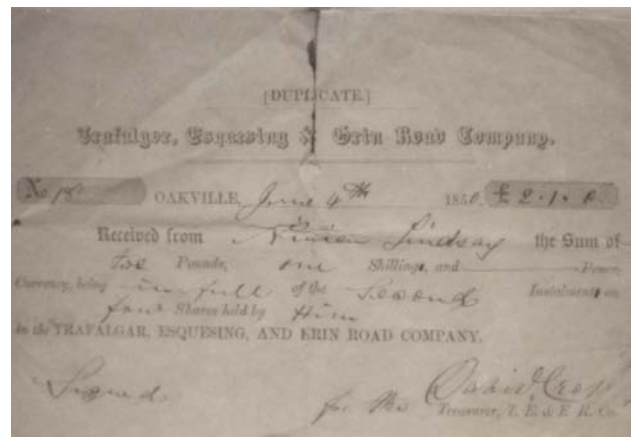 [DUPLICATE.]
Trafalgar, Esquesing & Erin Road Company.
No 18 OAKVILLE, June 4th 1850. £2.1.0
Received from Ninian Lindsay the Sum of
two Pounds, one Shillings, and Pence
Currency, being in full of the Second Instalment on
four Shares held by Him
in the TRAFALGAR, ESQUESING, AND ERIN ROAD COMPANY.
Signed for the David Cross
Treasurer, T. E. & E R. Co.